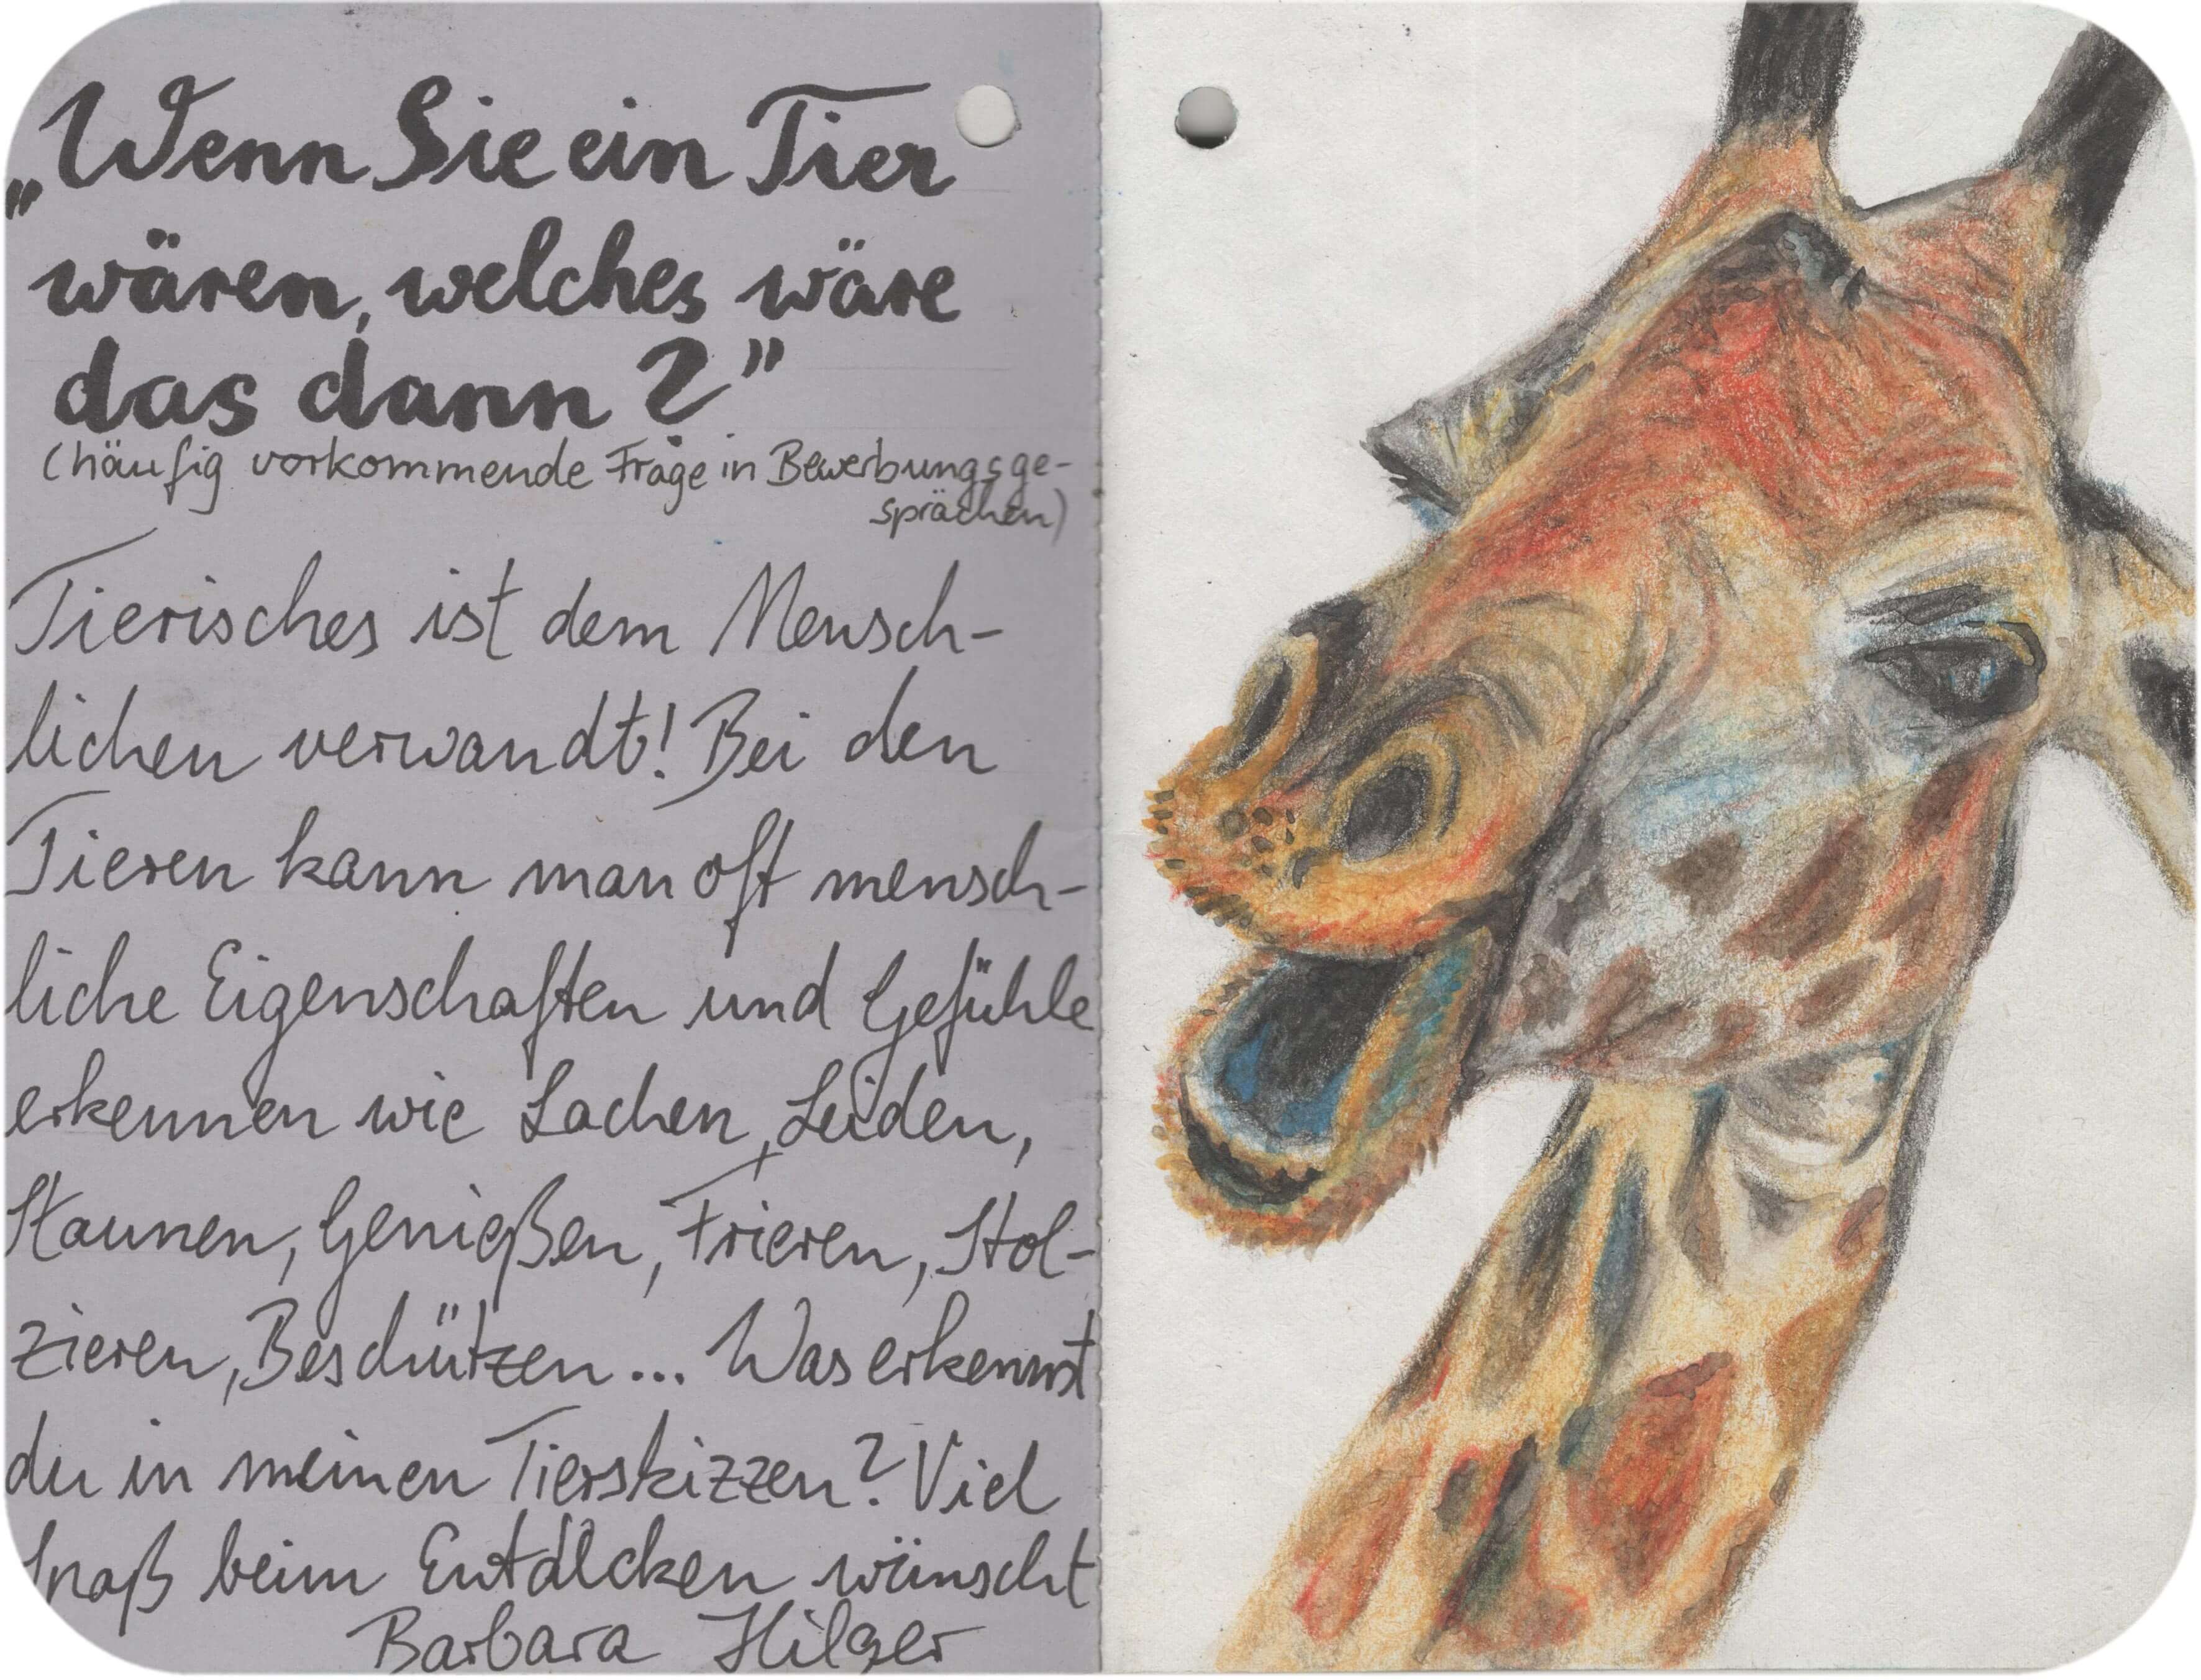 „Wenn Sie ein Tier
wären, welches wäre
das dann?”
(häufig vorkommende Frage in Bewerbungsge-
sprächen)
Tierisches ist dem Mensch-
lichen verwandt! Bei den
Tieren kann man oft mensch-
liche Eigenschaften und Gefühle
erkennen wie Lachen, Leiden,
Staunen, Genießen, Frieren, Stol-
zieren, Beschützen... Was erkennst
du in meinen Tierskizzen? Viel
Spaß beim Entdecken wünscht
Barbara Hilger